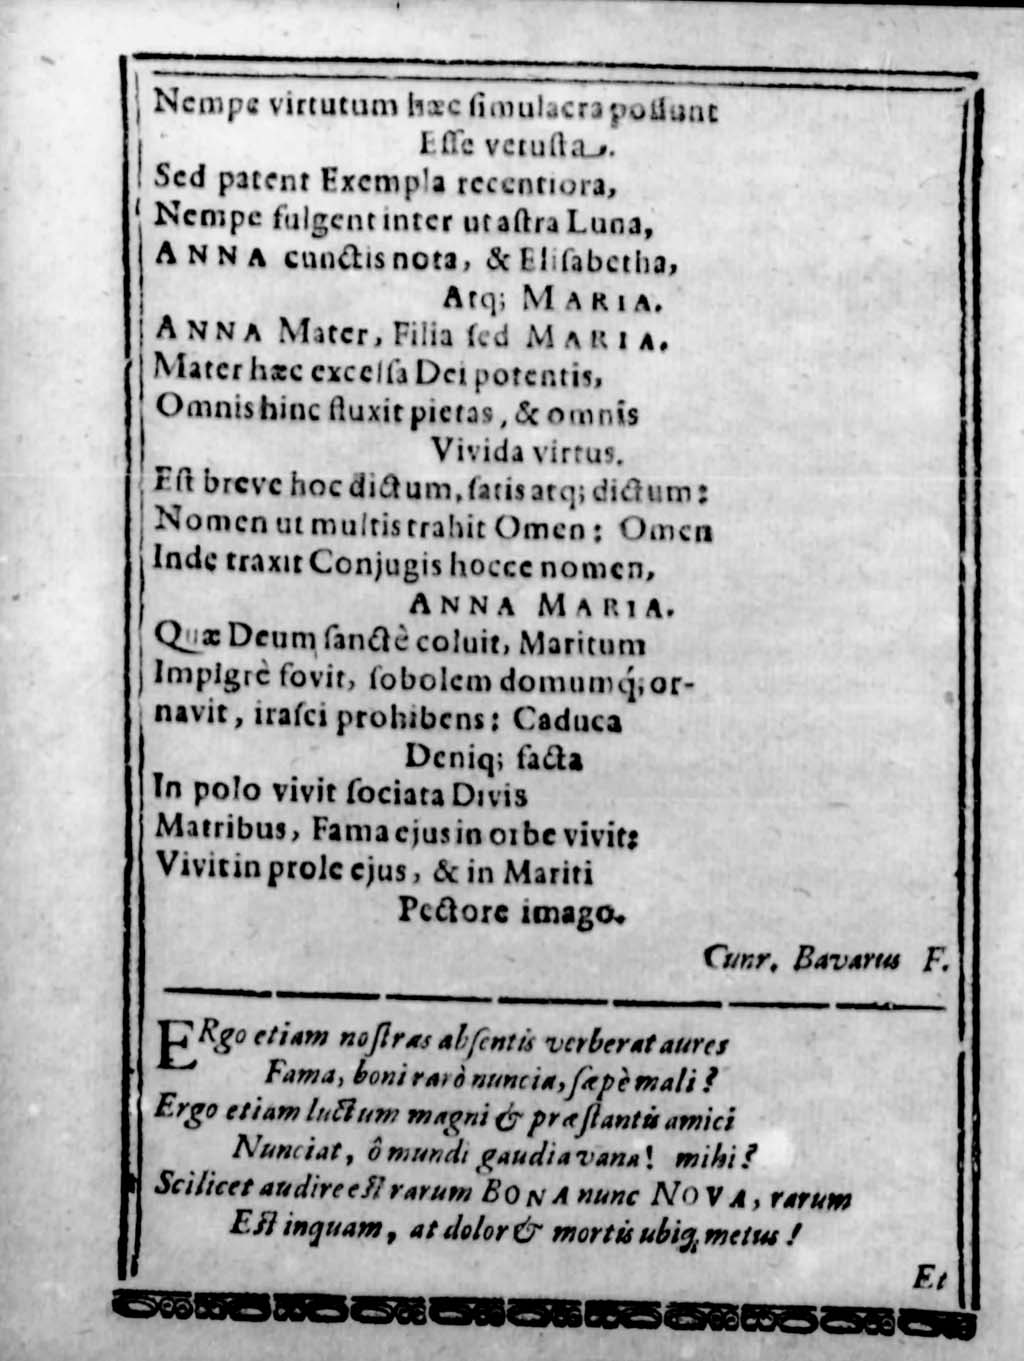 Nempe virtutum hæc ſimulacra poſſunt
Eſſe vetuſta.
Sed patent Exempla recentiora,
Nempe fulgent inter ut aſtra Luna,
ANNA cunctis nota, & Eliſabetha,
Atq; MARIA.
ANNA Mater, Filia ſed MARIA.
Mater hæc excelſa Dei potentis,
Omnis hinc fluxit pietas, & omnis
Vivida virtus.
Eſt breve hoc dictum, ſatis atq; dictum:
Nomen ut multis trahit Omen: Omen
Inde traxit Conjugis hocce nomen,
ANNA MARIA.
Quæ Deum ſanctè coluit, Maritum
Impigrè fovit, ſobolem domumq́; or-
navit, iraſci prohibens: Caduca
Deniq; facta
In polo vivit ſociata Divis
Matribus, Fama ejus in orbe vivit:
Vivit in prole ejus, & in Mariti
Pectore imago.
Cunr. Bavarus F.
ERgo etiam noſtras abſentis verberat aures
Fama, boni rarò nuncia, ſæpè mali?
Ergo etiam luctum magni & præſtantis amici
Nunciat, ô mundi gaudia vana! mihi?
Scilicet audire eſt rarum BONA nunc NOVA, rarum
Eſt inquam, at dolor & mortis ubiq; metus!
Et